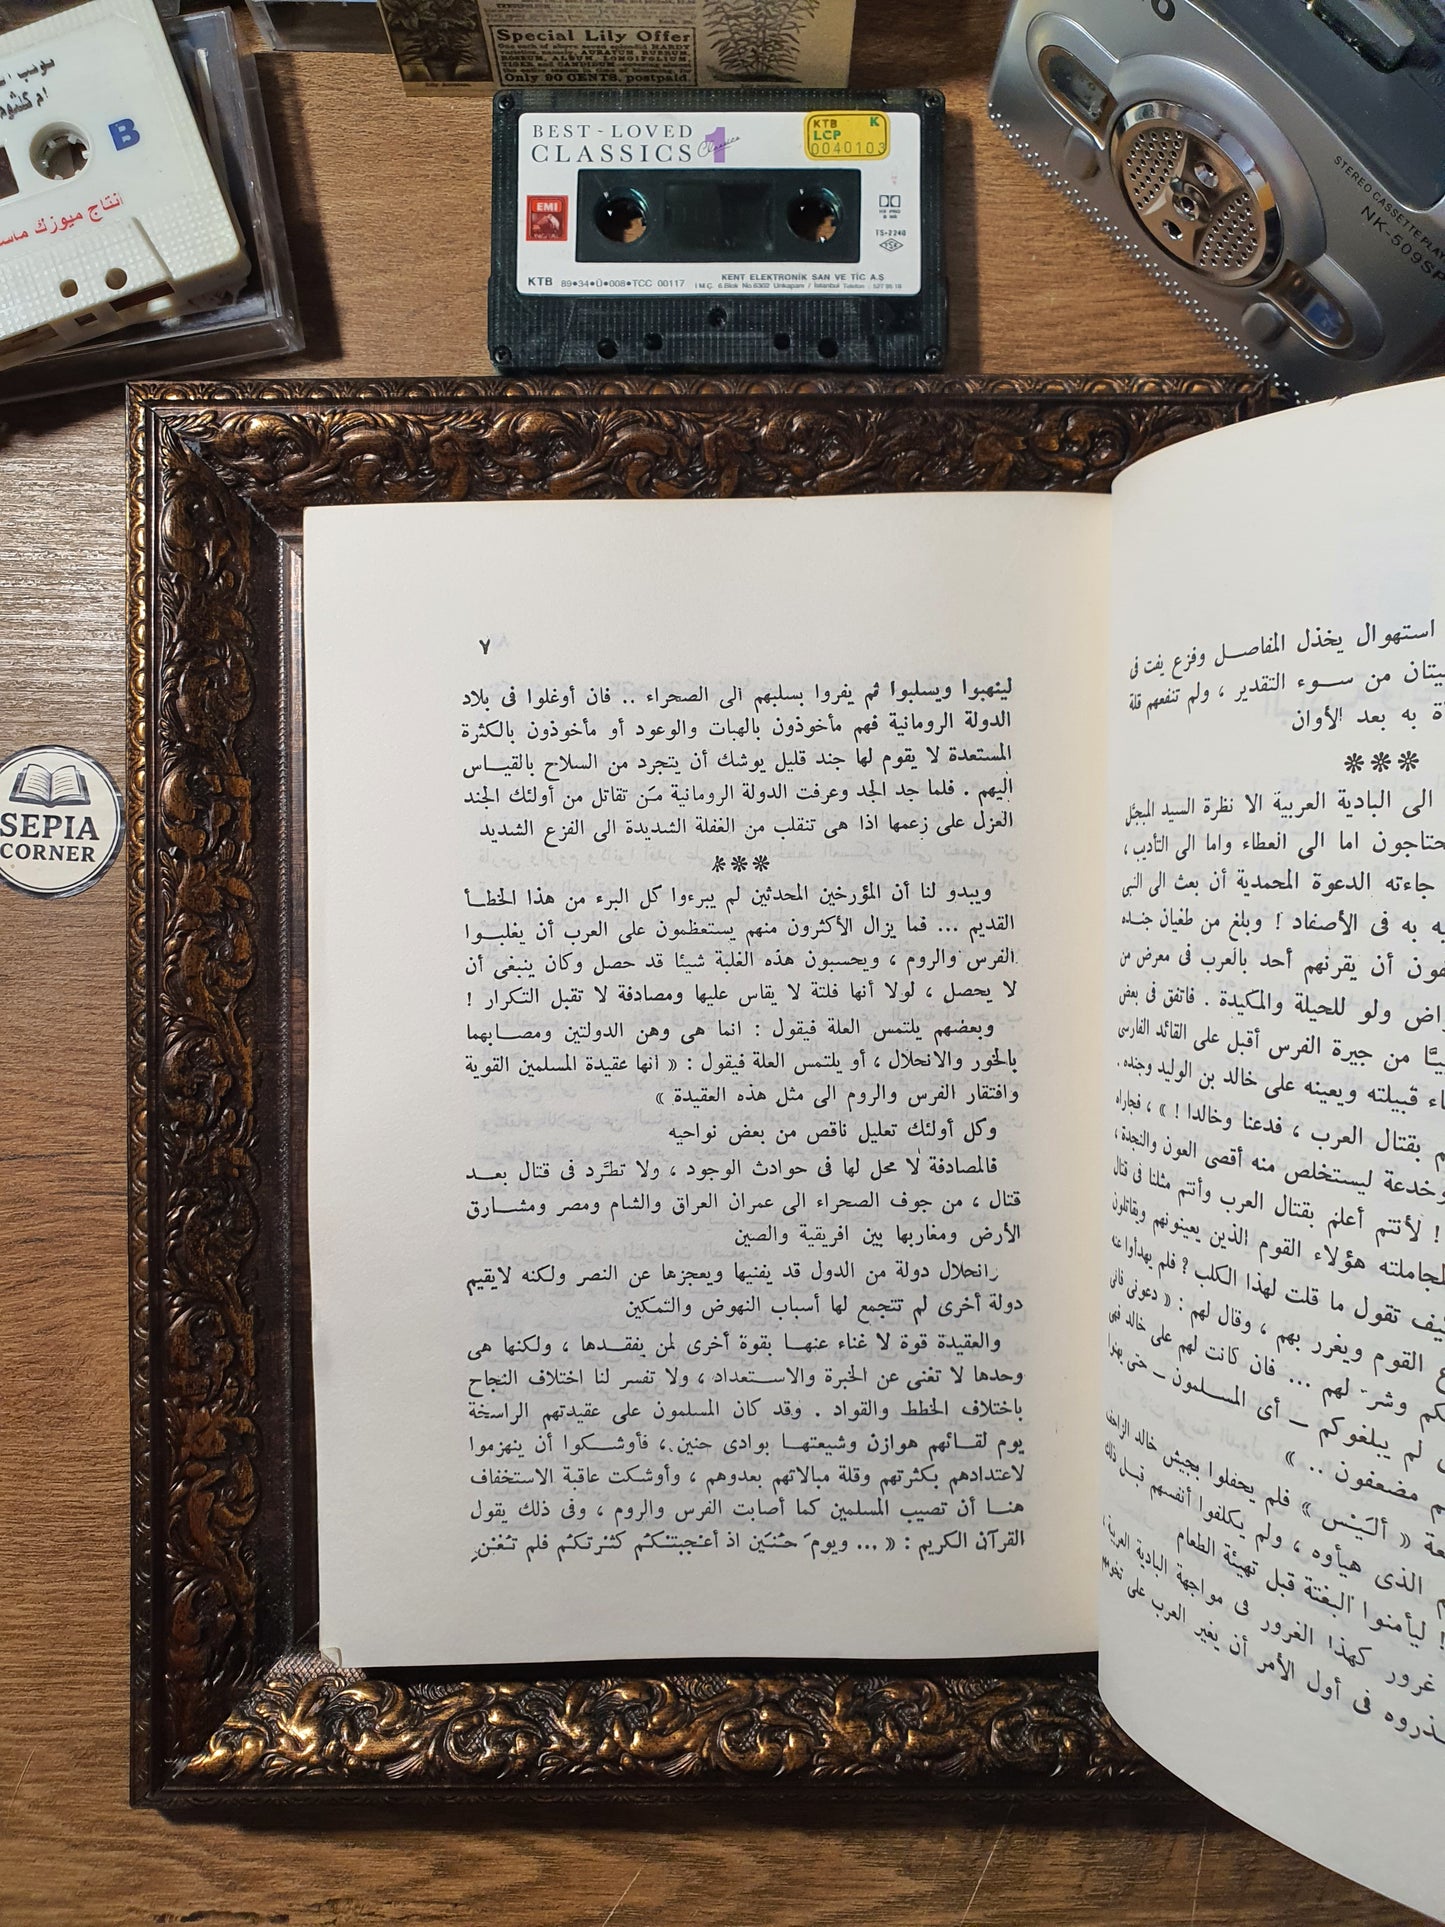 Special Lily Offer
One each of above seven splendid HARDY
varieties, namely, AURATUM, RUBRUM,
ROSEUM, ALBUM, LONGIFLORUM,
TIGER, and CANDIDUM
Only 90 CENTS, postpaid.
B
انتاج ميوزك
BEST - LOVED
CLASSICS 1
Classics
KTB K
LCP
0040103
EMI
HX PRO
B NR
TS-2240
TSE
KENT ELEKTRONİK SAN VE TİC A.Ş
KTB 89•34•Ü•008•TCC 00117
İ.M.Ç. 6.Blok No.6302 Unkapanı / İstanbul Telefon : 527 95 18
STEREO CASSETTE PLAYER
NK-509SP
SEPIA
CORNER
٧
لينهبوا ويسلبوا ثم يفروا بسلبهم الى الصحراء .. فان أوغلوا فى بلاد
الدولة الرومانية فهم مأخوذون بالهبات والوعود أو مأخوذون بالكثرة
المستعدة لا يقوم لها جند قليل يوشك أن يتجرد من السلاح بالقياس
اليهم . فلما جد الجد وعرفت الدولة الرومانية مَن تقاتل من أولئك الجند
العزل على زعمها اذا هى تنقلب من الغفلة الشديدة الى الفزع الشديد
***
ويبدو لنا أن المؤرخين المحدثين لم يبرءوا كل البرء من هذا الخطأ
القديم ... فما يزال الأكثرون منهم يستعظمون على العرب أن يغلبوا
الفرس والروم ، ويحسبون هذه الغلبة شيئا قد حصل وكان ينبغى أن
لا يحصل ، لولا أنها فلتة لا يقاس عليها ومصادفة لا تقبل التكرار !
وبعضهم يلتمس العلة فيقول : انما هى وهن الدولتين ومصابهما
بالخور والانحلال ، أو يلتمس العلة فيقول : « انها عقيدة المسلمين القوية
وافتقار الفرس والروم الى مثل هذه العقيدة »
وكل أولئك تعليل ناقص من بعض نواحيه
فالمصادفة لا محل لها فى حوادث الوجود ، ولا تطَّرد فى قتال بعد
قتال ، من جوف الصحراء الى عمران العراق والشام ومصر ومشارق
الأرض ومغاربها بين افريقية والصين
وانحلال دولة من الدول قد يفنيها ويعجزها عن النصر ولكنه لايقيم
دولة أخرى لم تتجمع لها أسباب النهوض والتمكين
والعقيدة قوة لا غناء عنها بقوة أخرى لمن يفقدها ، ولكنها هى
وحدها لا تغنى عن الخبرة والاستعداد ، ولا تفسر لنا اختلاف النجاح
باختلاف الخطط والقواد . وقد كان المسلمون على عقيدتهم الراسخة
يوم لقائهم هوازن وشيعتها بوادى حنين ، فأوشكوا أن ينهزموا
لاعتدادهم بكثرتهم وقلة مبالاتهم بعدوهم ، وأوشكت عاقبة الاستخفاف
هنا أن تصيب المسلمين كما أصابت الفرس والروم ، وفى ذلك يقول
القرآن الكريم : « ... ويومَ حُنَين اذ أعْجبتْكُم كثرتكُم فلم تُغْنِ
استهوال يخذل المفاصل وفزع يفت فى
يتان من سوء التقدير ، ولم تنفعهم قلة
ة به بعد الأوان
***
الى البادية العربية الا نظرة السيد المبجّل
حتاجون اما الى العطاء واما الى التأديب ،
جاءته الدعوة المحمدية أن بعث الى النبى
يه به فى الأصفاد ! وبلغ من طغيان جنده
فون أن يقرنهم أحد بالعرب فى معرض من
راض ولو للحيلة والمكيدة . فاتفق فى بعض
بيًّا من جيرة الفرس أقبل على القائد الفارسى
اء قبيلته ويعينه على خالد بن الوليد وجنده .
م بقتال العرب ، فدعنا وخالدا ! » ، فجاراه
وخدعة ليستخلص منه أقصى العون والنجدة ،
! لأنتم أعلم بقتال العرب وأنتم مثلنا فى قتال
لمجاملته هؤلاء القوم الذين يعينونهم ويقاتلون
كيف تقول ما قلت لهذا الكلب ? فلم يهدأوا عنه
ع القوم ويغرر بهم ، وقال لهم : « دعونى فانى
كم وشر لهم ... فان كانت لهم على خالد فهى
لم يبلغوكم – أى المسلمون – حتى يهنوا
م مضعفون .. »
عة « ألَيْس » فلم يحفلوا بجيش خالد الزاحف
م الذى هيأوه ، ولم يكلفوا أنفسهم قبل ذلك
! ليأمنوا البغتة قبل تهيئة الطعام
غرور كهذا الغرور فى مواجهة البادية العربية ،
ذروه فى أول الأمر أن يغير العرب على تخومهم